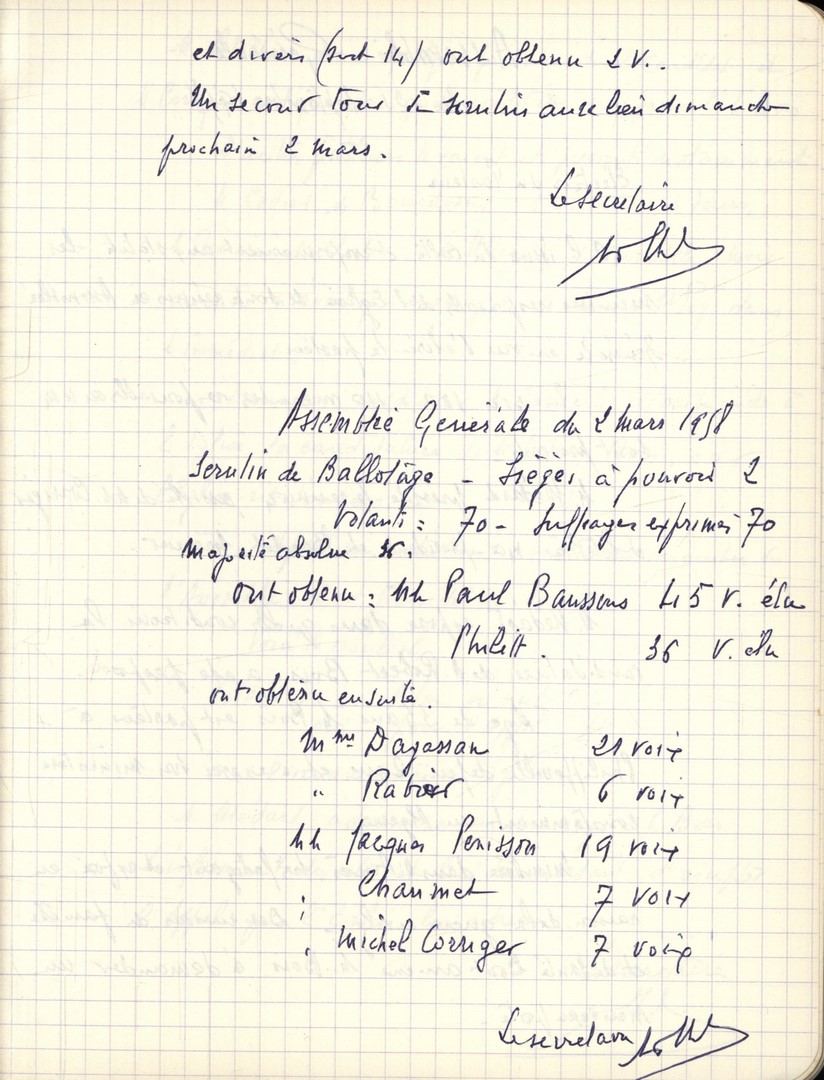 et divers (soit 14) ont obtenu 2 V..
Un second Tour de scrutin aura lieu dimanche
prochain 2 mars.
Le secretaire
Assemblée Générale du 2 Mars 1958
Scrutin de Ballotage - Sièges à pourvoir 2
Votants : 70 - Suffrages exprimés 70
Majorité absolue 36.
ont obtenu : MM Paul Baussens 45 V. élu
Philitt. 36 V. élu
ont obtenu ensuite.
Mme Dagassan 21 voix
" Rabier 6 voix
MM Jacques Penisson 19 voix
" Chaumet 7 voix
" Michel Corriger 7 voix
Le secretaire